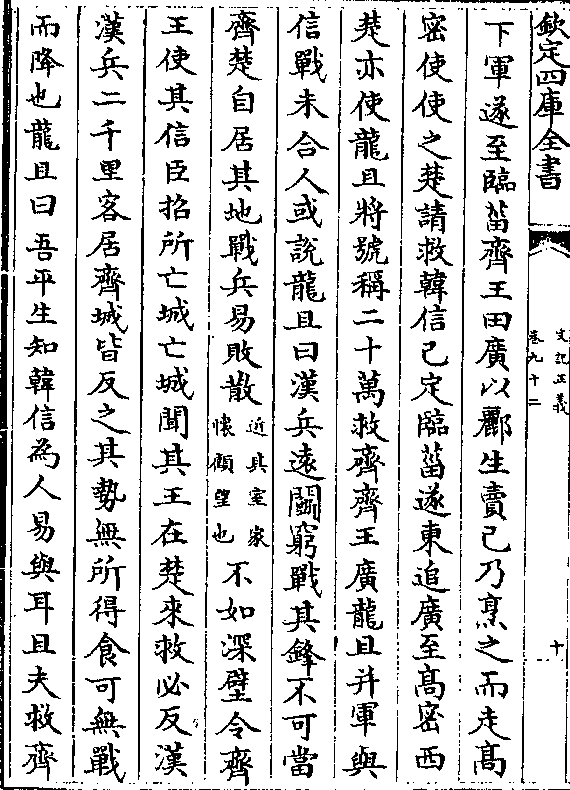 欽定四庫全書
史記正義
卷九十二
十
下軍遂至臨菑齊王田廣以酈生賣己乃烹之而走髙
密使使之楚請救韓信已定臨菑遂東追廣至髙密西
楚亦使龍且將號稱二十萬救齊齊王廣龍且并軍與
信戰未合人或說龍且曰漢兵遠鬬窮戰其鋒不可當
齊楚自居其地戰兵易敗散近其室家懷顧望也不如深壁令齊
王使其信臣招所亡城亡城聞其王在楚來救必反漢
漢兵二千里客居齊城皆反之其勢無所得食可無戰
而降也龍且曰吾平生知韓信為人易與耳且夫救齊